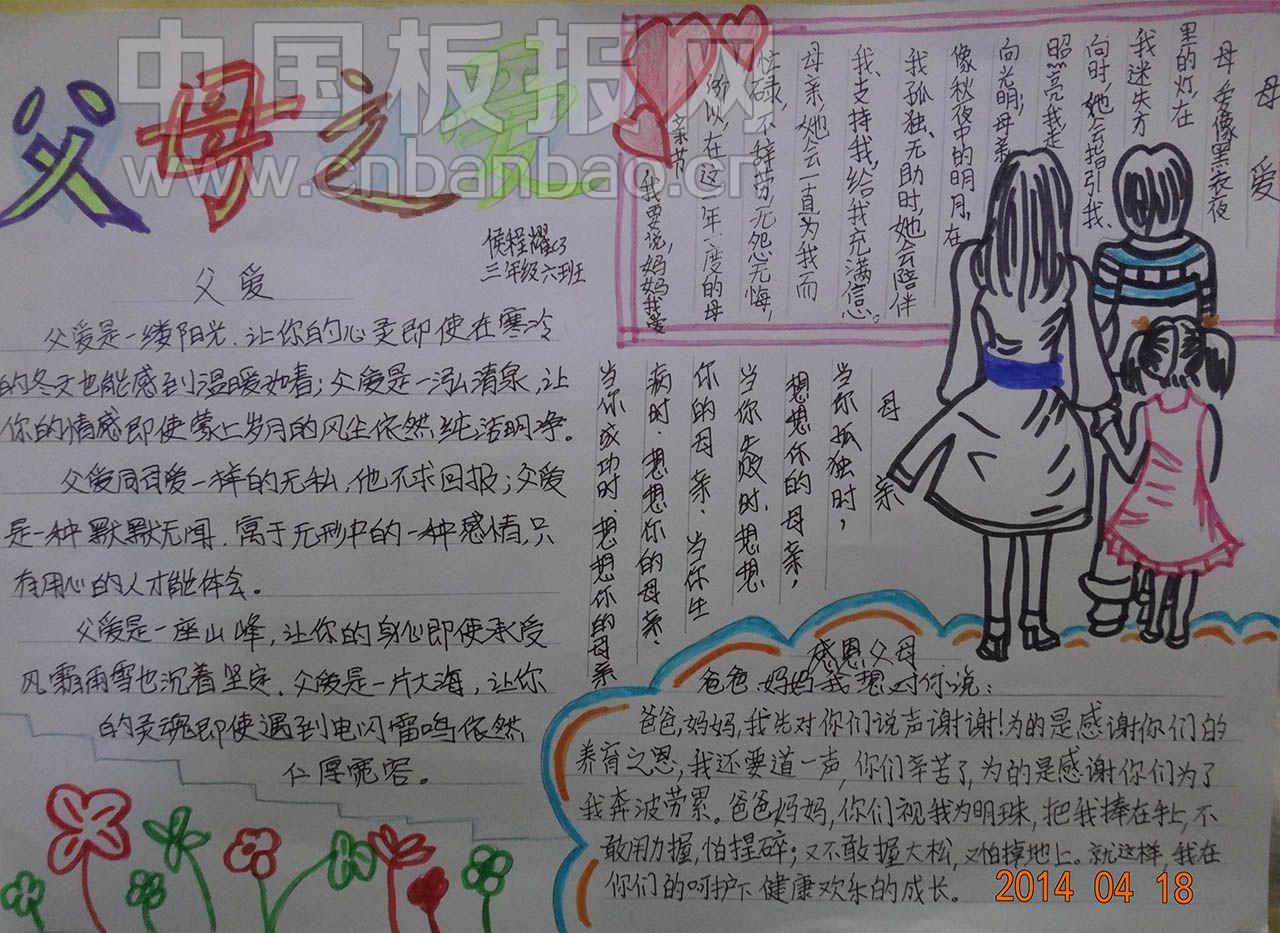 中国板报网
www.cnbanbao.cn
父母之爱
侯程耀63
三年级六班
父爱
父爱是一缕阳光,让你的心灵即使在寒冷
的冬天也能感到温暖如春;父爱是一泓清泉,让
你的情感即使蒙上岁月的风尘依然纯洁明净。
父爱同母爱一样的无私,他不求回报;父爱
是一种默默无闻,寓于无形中的一种感情,只
有用心的人才能体会。
父爱是一座山峰,让你的身心即使承受
风霜雨雪也沉着坚定,父爱是一片大海,让你
的灵魂即使遇到电闪雷鸣依然
仁厚宽容。
母爱
母爱像黑衣夜
里的灯,在
我迷失方
向时,她会指引我、
照亮我走
向光明,母亲
像秋夜中的明月,在
我孤独、无助时,她会陪伴
我、支持我,给我充满信。
母亲,她会一直为我而
忙碌,不辞劳,无怨无悔,
所以,在这一年一度的母
亲节
我要说,妈妈我爱
母亲
当你孤独时,
想想你的母亲,
当你失败时,想想
你的母亲,当你生
病时,想想你的母亲,
当你成功时,想想你的母亲
感恩父母
爸爸、妈妈我想对你说:
爸爸,妈妈,我先对你们说声谢谢!为的是感谢你们的
养育之恩,我还要道一声,你们辛苦了,为的是感谢你们为了
我奔波劳累。爸爸妈妈,你们视我为明珠,把我捧在手上,不
敢用力握,怕捏碎;又不敢握大松,又怕掉地上。就这样,我在
你们的呵护下健康欢乐的成长。
2014 04 18